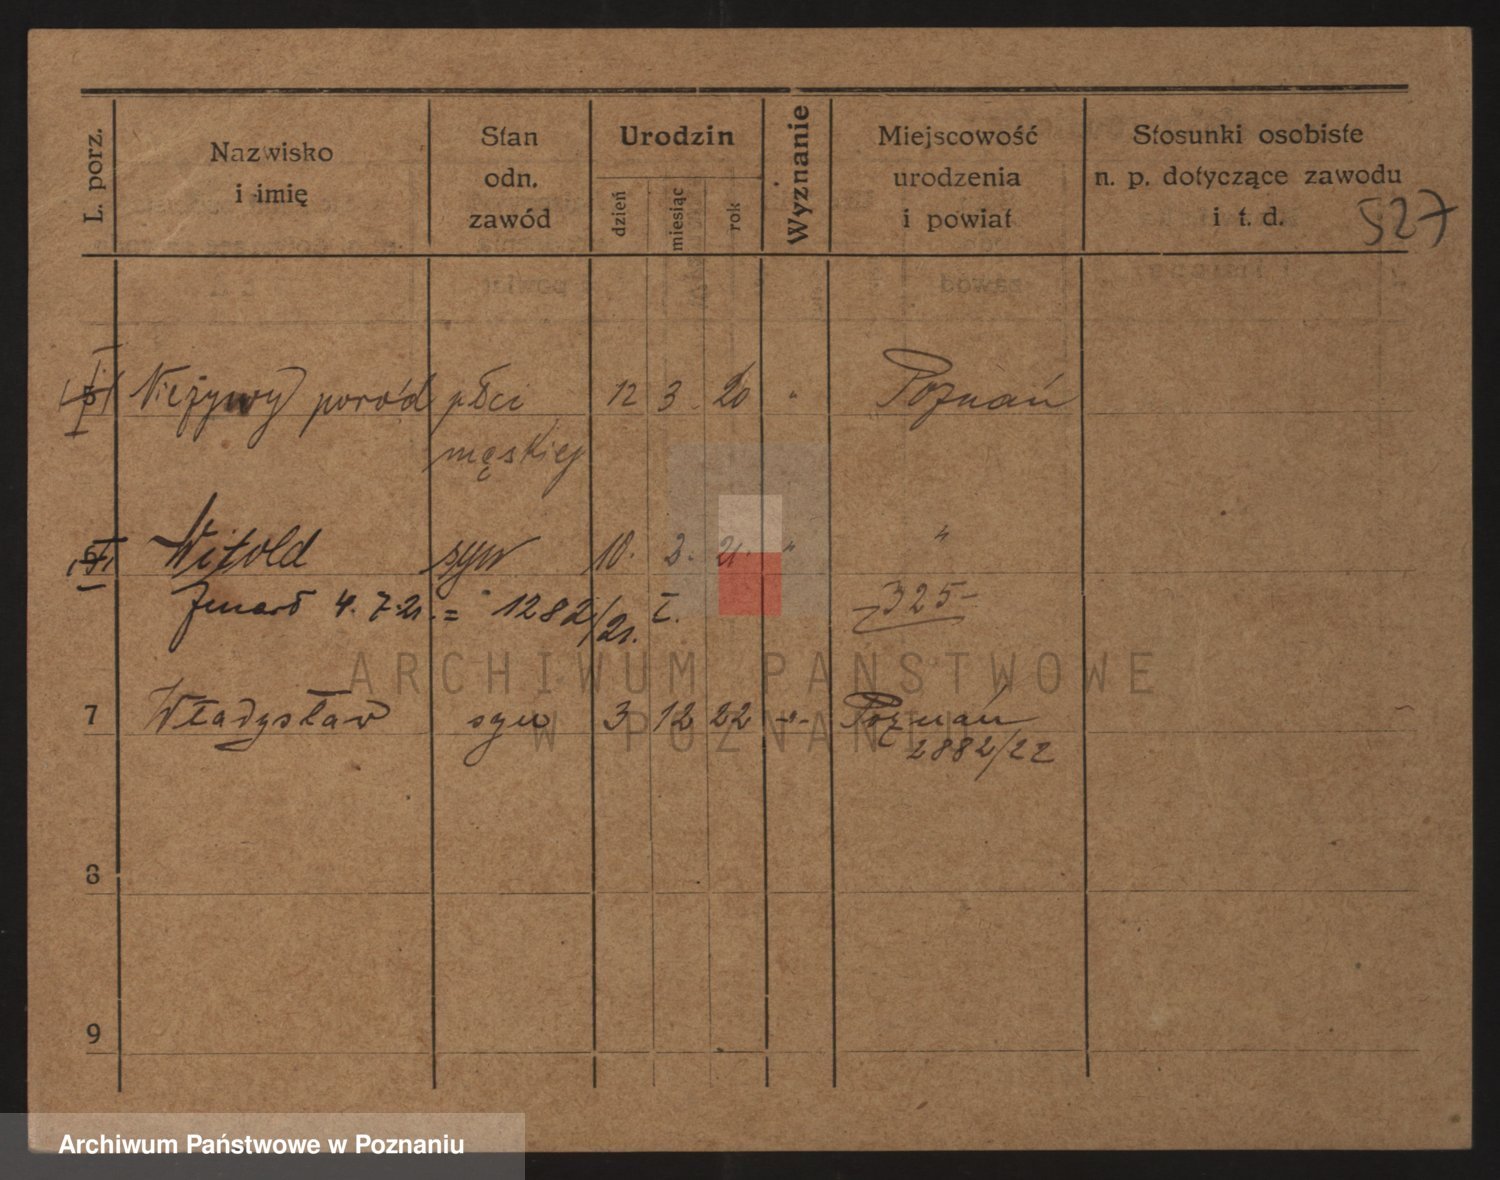 L. porz.
Nazwisko
i imię
Stan
odn.
zawód
Urodzin
dzień
miesiąc
rok
Wyznanie
Miejscowość
urodzenia
i powiat
Stosunki osobiste
n. p. dotyczące zawodu
i t. d.
527
5 Nieżywy poród płci 12 3 20 " Poznań
męskiej
6 Witold syn 10. 2. 21. " "
Zmarł 4. 7. 21. = 1282/21. I. 325-
7 Władysław syn 3 12 22 -"- Poznań
2882/22
8
9
ARCHIWUM PAŃSTWOWE
W POZNANIU
Archiwum Państwowe w Poznaniu